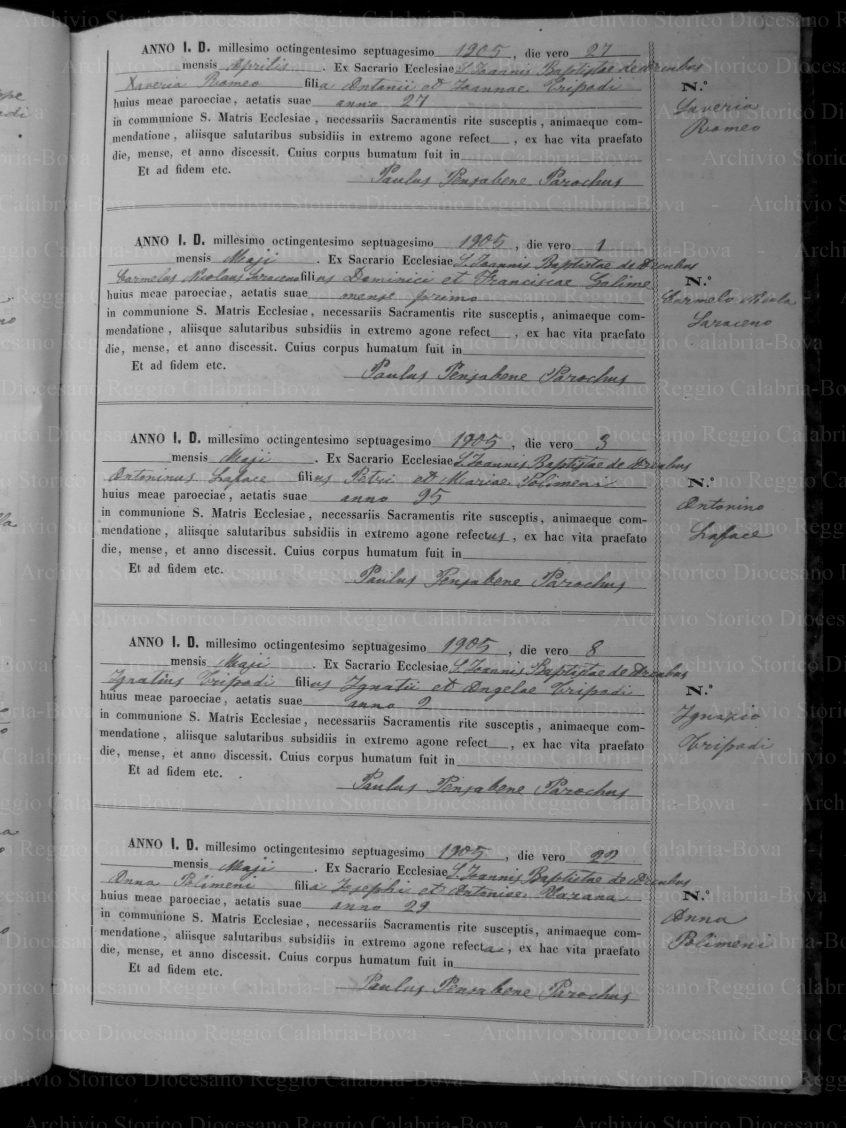 ANNO I. D. millesimo octingentesimo septuagesimo 1905, die vero 27
mensis Aprilis. Ex Sacrario Ecclesiae S. Joannis Baptistae de Arenbus
Xaveria Romeo filia Antonii et Joannae Tripodi
huius meae paroeciae, aetatis suae anno 27
in communione S. Matris Ecclesiae, necessariis Sacramentis rite susceptis, animaeque com-
mendatione, aliisque salutaribus subsidiis in extremo agone refect__, ex hac vita praefato
die, mense, et anno discessit. Cuius corpus humatum fuit in
Et ad fidem etc.
Paulus Pensabene Parochus
N.º
Saveria
Romeo
ANNO I. D. millesimo octingentesimo septuagesimo 1905, die vero 1
mensis Maji. Ex Sacrario Ecclesiae S. Joannis Baptistae de Arenbus
Carmelus Nicolaus Saraceno filius Dominici et Franciscae Laline
huius meae paroeciae, aetatis suae mense primo
in communione S. Matris Ecclesiae, necessariis Sacramentis rite susceptis, animaeque com-
mendatione, aliisque salutaribus subsidiis in extremo agone refect__, ex hac vita praefato
die, mense, et anno discessit. Cuius corpus humatum fuit in
Et ad fidem etc.
Paulus Pensabene Parochus
N.º
Carmelo Nicola
Saraceno
ANNO I. D. millesimo octingentesimo septuagesimo 1905, die vero 3
mensis Maji. Ex Sacrario Ecclesiae S. Joannis Baptistae de Arenbus
Antoninus Laface filius Petri et Mariae Polimeni
huius meae paroeciae, aetatis suae anno 95
in communione S. Matris Ecclesiae, necessariis Sacramentis rite susceptis, animaeque com-
mendatione, aliisque salutaribus subsidiis in extremo agone refectus, ex hac vita praefato
die, mense, et anno discessit. Cuius corpus humatum fuit in
Et ad fidem etc.
Paulus Pensabene Parochus
N.º
Antonino
Laface
ANNO I. D. millesimo octingentesimo septuagesimo 1905, die vero 8
mensis Maji. Ex Sacrario Ecclesiae S. Joannis Baptistae de Arenbus
Ignatius Tripodi filius Ignatii et Angelae Tripodi
huius meae paroeciae, aetatis suae anno 2
in communione S. Matris Ecclesiae, necessariis Sacramentis rite susceptis, animaeque com-
mendatione, aliisque salutaribus subsidiis in extremo agone refect__, ex hac vita praefato
die, mense, et anno discessit. Cuius corpus humatum fuit in
Et ad fidem etc.
Paulus Pensabene Parochus
N.º
Ignazio
Tripodi
ANNO I. D. millesimo octingentesimo septuagesimo 1905, die vero 22
mensis Maji. Ex Sacrario Ecclesiae S. Joannis Baptistae de Arenbus
Anna Polimeni filia Josephi et Antoniae Varana
huius meae paroeciae, aetatis suae anno 29
in communione S. Matris Ecclesiae, necessariis Sacramentis rite susceptis, animaeque com-
mendatione, aliisque salutaribus subsidiis in extremo agone refecta, ex hac vita praefato
die, mense, et anno discessit. Cuius corpus humatum fuit in
Et ad fidem etc.
Paulus Pensabene Parochus
N.º
Anna
Polimeni
Archivio Storico Diocesano Reggio Calabria-Bova